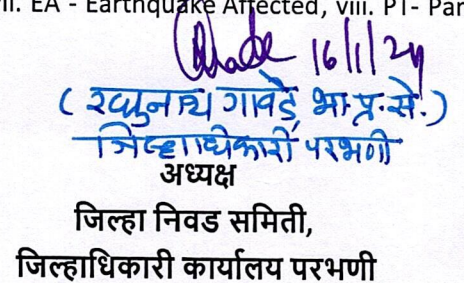 ii. EA - Earthquake Affected, viii. PT- Par
16/1/24
( रघुनाथ गावडे, भा.प्र.से.)
जिल्हाधिकारी परभणी
अध्यक्ष
जिल्हा निवड समिती,
जिल्हाधिकारी कार्यालय परभणी